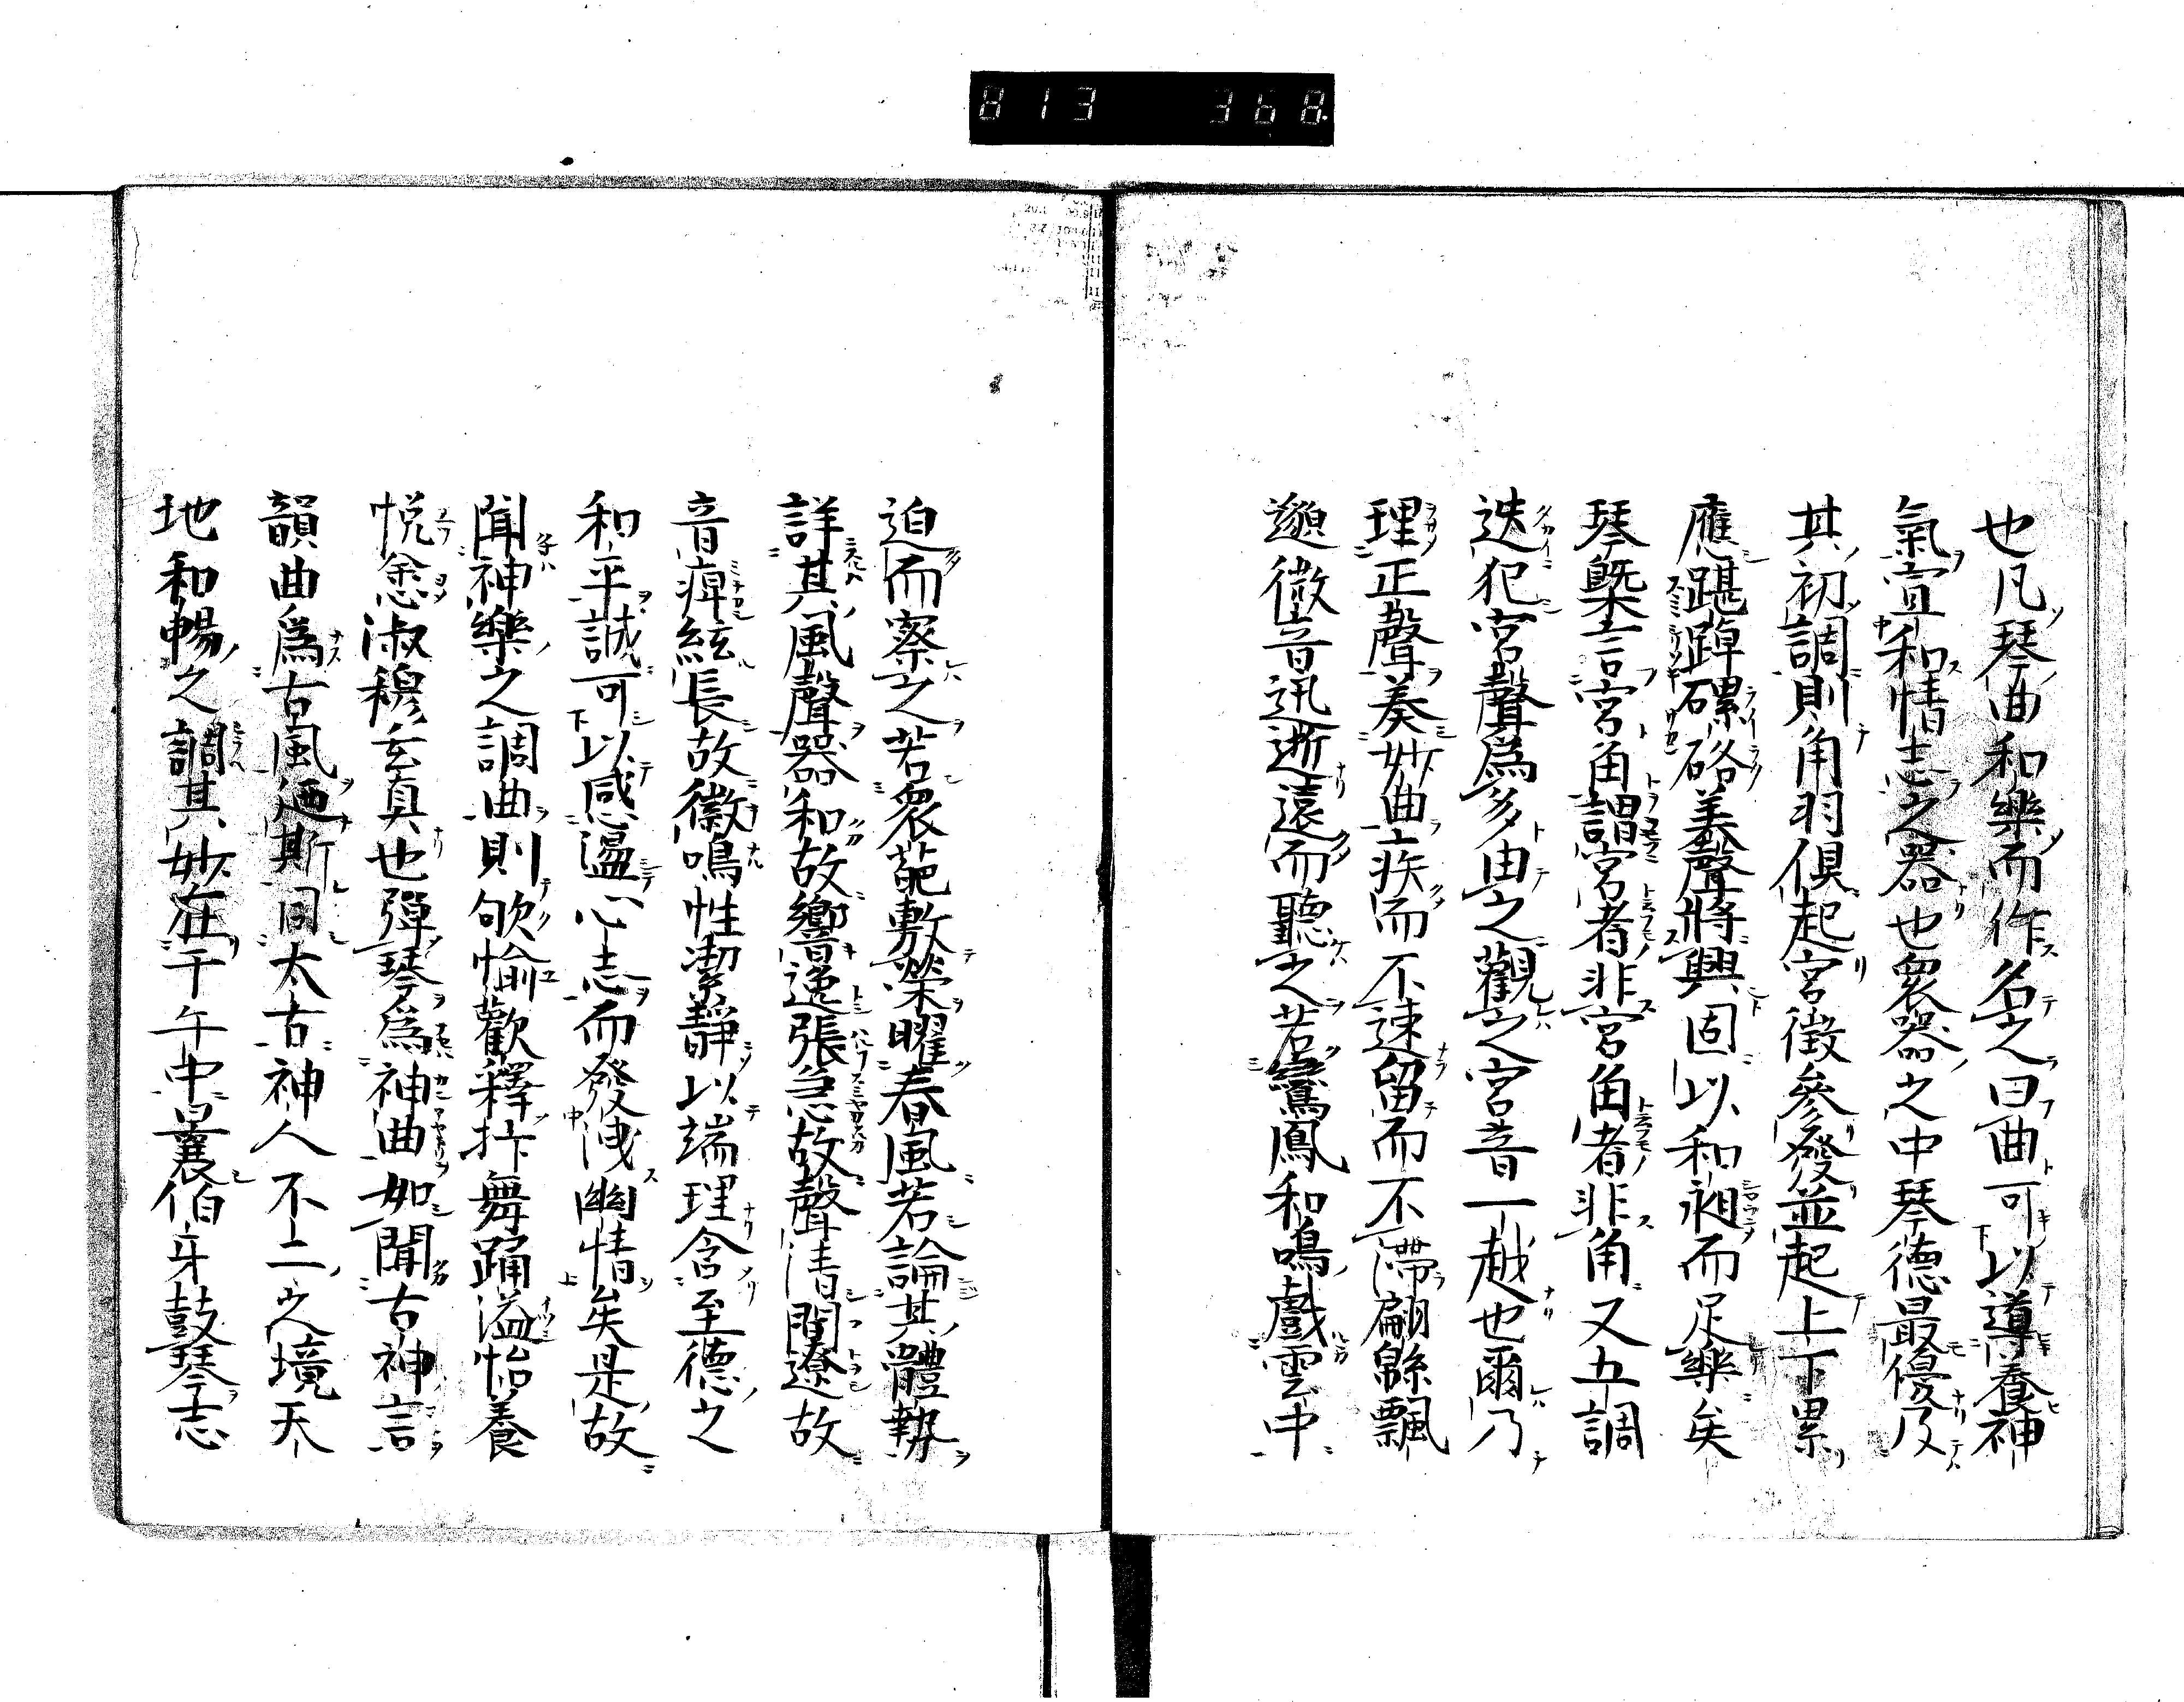 813 368
也凡琴曲和樂而作名之曰曲可以導養神
氣宣和情志之器也衆器之中琴德最優乃
其初調則角羽俱起宮徵參發並起上下累
應踸踔磥硌羙聲將興固以和昶而足樂矣
琴槩言宮角謂宮者非宮角者非角又五調
迭犯宮聲爲多由之觀之宮音一越也爾乃
理正聲奏妙曲疾而不速留而不滯翩緜飄
邈微音迅逝遠而聽之若鸞鳳和鳴戲雲中
迫而察之若衆葩敷榮曜春風若論其體勢
詳其風聲器和故響逸張急故聲清閒遼故
音痺絃長故徽鳴性潔靜以端理含至德之
和平誠可以感盪心志而發洩幽情矣是故
聞神樂之調曲則欨愉歡釋抃舞踊溢怡養
悦悆淑穆玄真也彈琴爲神曲如聞古神言
韻曲爲古風廼斯同太古神人不二之境天
地和暢之調其妙在于午中曩伯牙鼓琴志